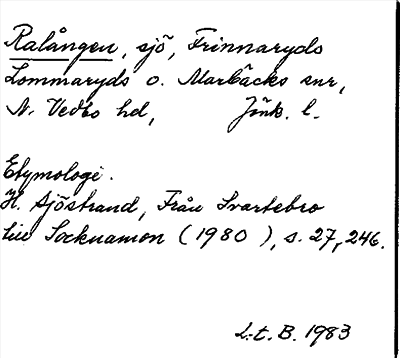 Ralången, sjö, Frinnaryds
Lommaryds o. Marbäcks snr,
N. Vedbo hd, Jönk. l.
Etymologi.
H. Sjöstrand, Från Svartebro
till Socknamon (1980), s. 27, 246.
L.t. B. 1983